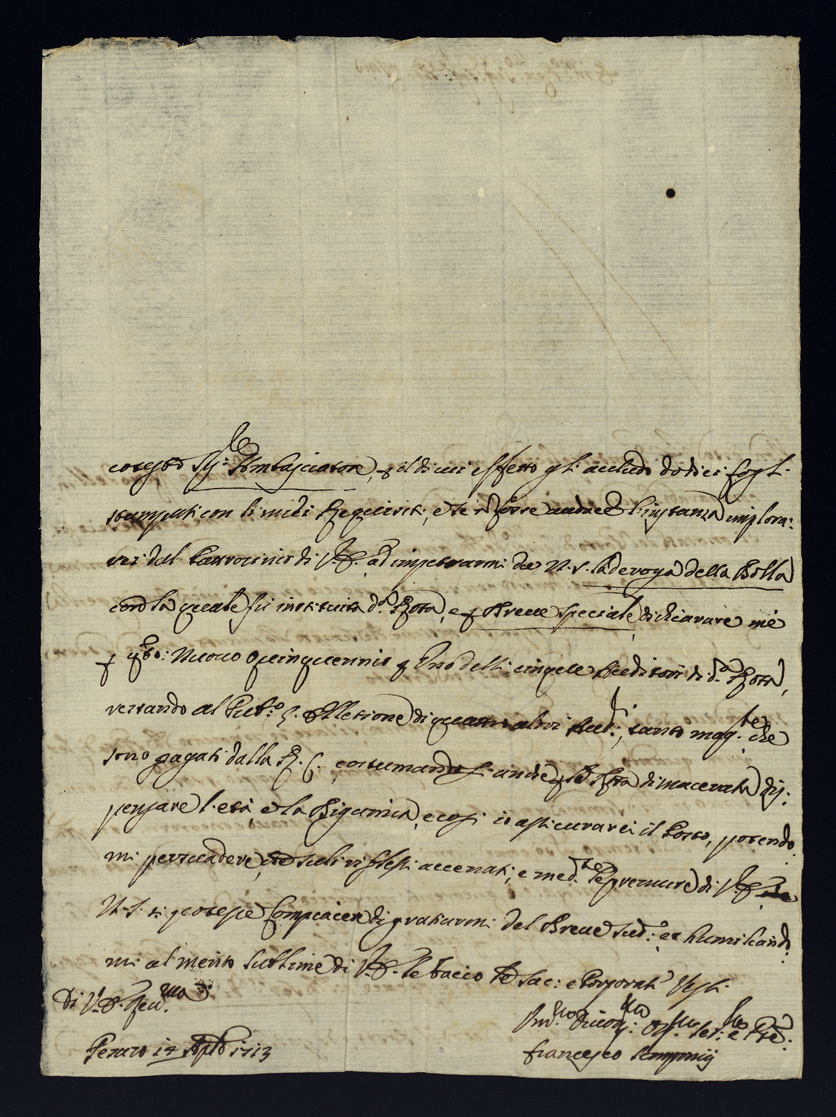 cotesto Sig.re Ambasciatore, al di cui effetto gli accludo dodici fogli
stampati con li miei Requisiti, e se fosse l'instanza implora:
rei del Patrocinio di V.E. ad impetrarmi da N.S. la deroga della Bolla
con la quale fù instituita d.a Rota, e Breve speciale, dichiarare me
p nuovo quinquennio p Uno delli cinque Auditori di d.a Rota,
versando al elettione di quattro altri Aud.i, tanto mag.te che
sono pagati dalla R. C. costumandosi anche Rota di Macerata dis:
pensare l'età e la Bigamia, e così io assicurarei il Posto, potendo:
mi persuadere, che sul riflessi accenati, e med.te le premure di V.E.
N.S. si potesse compiacere di gratiarmi del Breve sud.o et humiliando:
mi al merito sublime di V.E. le bacio le Sac: e Porporate Vesti.
Di V.E. Rev.ma
Pesaro 14 Ap.le 1713
Hum.mo Divot.mo Oss.mo Ser.re
Francesco